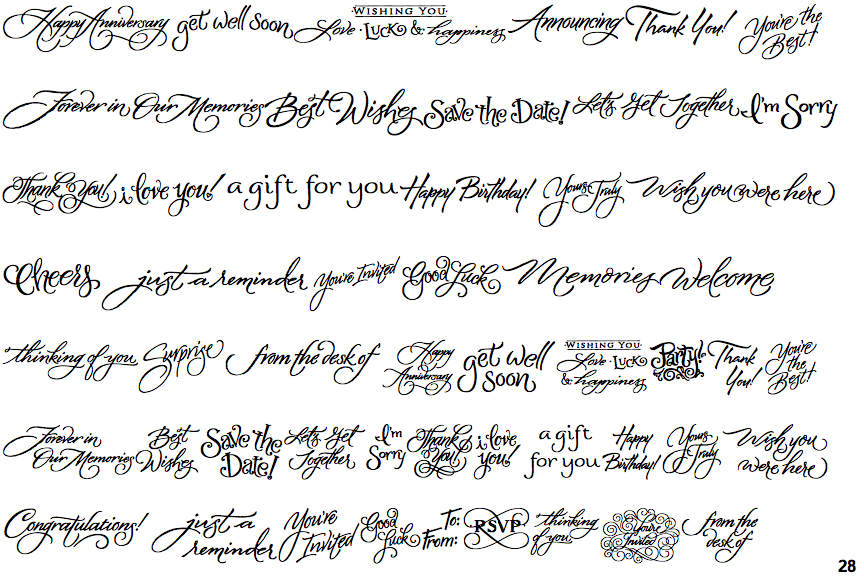 Happy Anniversary get well soon Wishing You Love · Luck & happiness Announcing Thank You! You're the Best!
Forever in Our Memories Best Wishes Save the Date! Let's Get Together I'm Sorry
Thank You! i love you! a gift for you Happy Birthday! Yours Truly Wish you were here
Cheers just a reminder You're Invited Good Luck Memories Welcome
thinking of you Surprise from the desk of Happy Anniversary get well soon Wishing You Love · Luck & happiness Party! Thank You! You're the Best!
Forever in Our Memories Best Wishes Save the Date! Let's Get Together I'm Sorry Thank You! i love you! a gift for you Happy Birthday! Yours Truly Wish you were here
Congratulations! just a reminder You're Invited Good Luck To: From: RSVP thinking of you You're Invited from the desk of
28